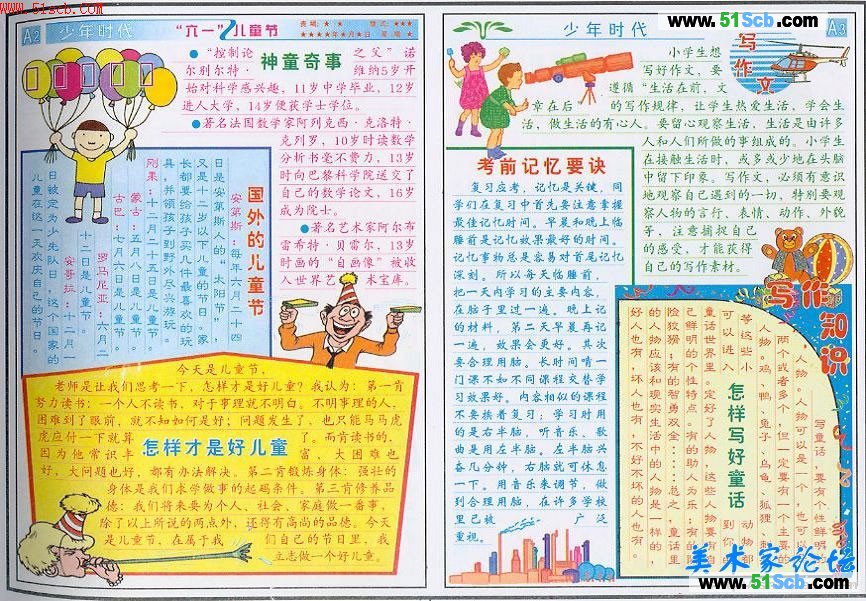 http://www.51Scb.com
A2
少年时代
“六一”儿童节
神童奇事
●“控制论之父”诺
尔别尔特·维纳5岁开
始对科学感兴趣，11岁中学毕业，12岁
进人大学，14岁便获学士学位。
●著名法国数学家阿列克西·克洛特·
克列罗，10岁时读数学
分析书毫不费力，13岁
时向巴黎科学院送交了
自己的数学论文，16岁
成为院士。
●著名艺术家阿尔布
雷希特·贝雷尔，13岁
时画的“自画像”被收
人世界艺术宝库。
国外的儿童节
安第斯：每年六月二十四
日是安第斯人的“太阳节”，
又是十二岁以下儿童的节日。家
长都要给孩子买几件最喜欢的玩
具，并领孩子到野外尽兴游玩。
刚果：十二月二十五日是儿童节。
蒙古：五月八日是儿童节。
古巴：七月六日是儿童节。
罗马尼亚：六月二
十二日是儿童节。
安哥拉：十二月一
日被定为少先队日，这个国家的
儿童在这一天欢庆自己的节日。
今天是儿童节，
老师是让我们思考一下，怎样才是好儿童？我认为：第一肯
努力读书：一个人不读书，对于事理就不明白。不明事理的人，
困难到了眼前，就不知如何是好；问题发生了，也只能马马虎
虎应付一下就算了。而肯读书的，
因为他常识丰富，大困难也
怎样才是好儿童
好，大问题也好，都有办法解决。第二肯锻炼身体：强壮的
身体是我们求学做事的起码条件。第三肯修养品
德：我们将来要为个人、社会、家庭做一番事，
除了以上所说的两点外，还得有高尚的品德。今天
是儿童节，在属于我们自己的节日里，我
立志做一个好儿童。
www.51Scb.com
少年时代
A3
写作文
小学生想
写好作文，要
遵循“生活在前，文
章在后的写作规律，让学生热爱生活，学会生
活，做生活的有心人。要留心观察生活，生活是由许多
人和人们所做的事组成的。小学生
在接触生活时，或多或少地在头脑
中留下印象，写作文，必须有意识
地观察自己遇到的一切，特别要观
察人物的言行、表情、动作、外貌
等，注意捕捉自己
的感受，才能获得
自己的写作素材。
考前记忆要诀
复习应考，记忆是关键，同
学们在复习中首先要注意掌握
最佳记忆时间。早晨和晚上临
睡前是记忆效果最好的时间。
记忆事物总是容易对首尾记忆
深刻。所以每天临睡前，
把一天内学习的主要内容，
在脑子里过一遍。晚上记
的材料，第二天早晨再记
一遍，效果会更好。其次
要合理用脑。长时间啃一
门课不如不同课程交替学
习效果好。内容相似的课程
不要挨着复习；学习时用
的是右半脑，听音乐、歌
曲是用左半脑。左半脑兴
奋几分钟，右脑就可休息
一下。用音乐来调节，做
到合理用脑，在许多学校
里已被广泛
重视。
写作知识
怎样写好童话
写童话，要有个性鲜明
人物。人物可以是一个，也可以
两个或者多个，但一定要有一个主要
人物。鸡、鸭、兔子、乌龟、狐狸、刺
等这些小动物都
可以进入到你
童话世界里。定好了人物，这些人物要有
己鲜明的个性特点。有的助人为乐；有的
险狡猾；有的智勇双全……总之，童话里
的人物应该和现实生活中的人物是一样的，
好人也有，坏人也有，不好不坏的人也有。
美术家论坛
www.51Scb.com